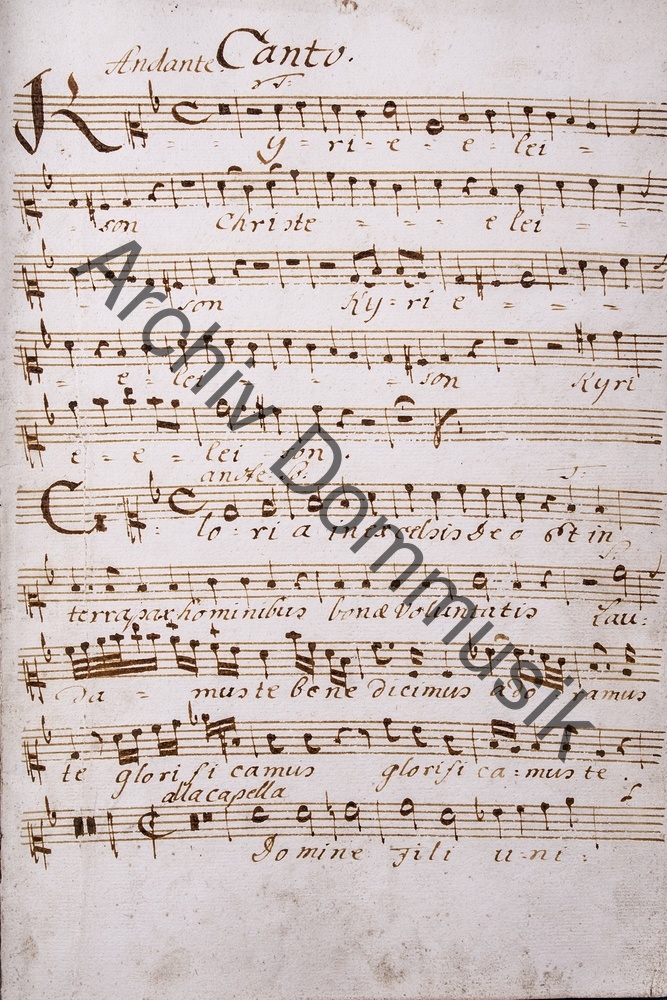 Andante. Canto.
T:
Ky - ri - e - e - lei =
= = son Christe = - - e lei - =
= = = son Ky - ri e = - = -
= e - lei - - = - son Kyri
e - e - lei - son .
andte
Glo - ri a in excelsis Deo et in
terra pax hominibus bonæ voluntatis Lau-
da - mus te bene dicimus ado ramus
te glorifi camus glorifi ca - mus te .
alla capella
Domine Fili u - ni -
Archiv Dommusik